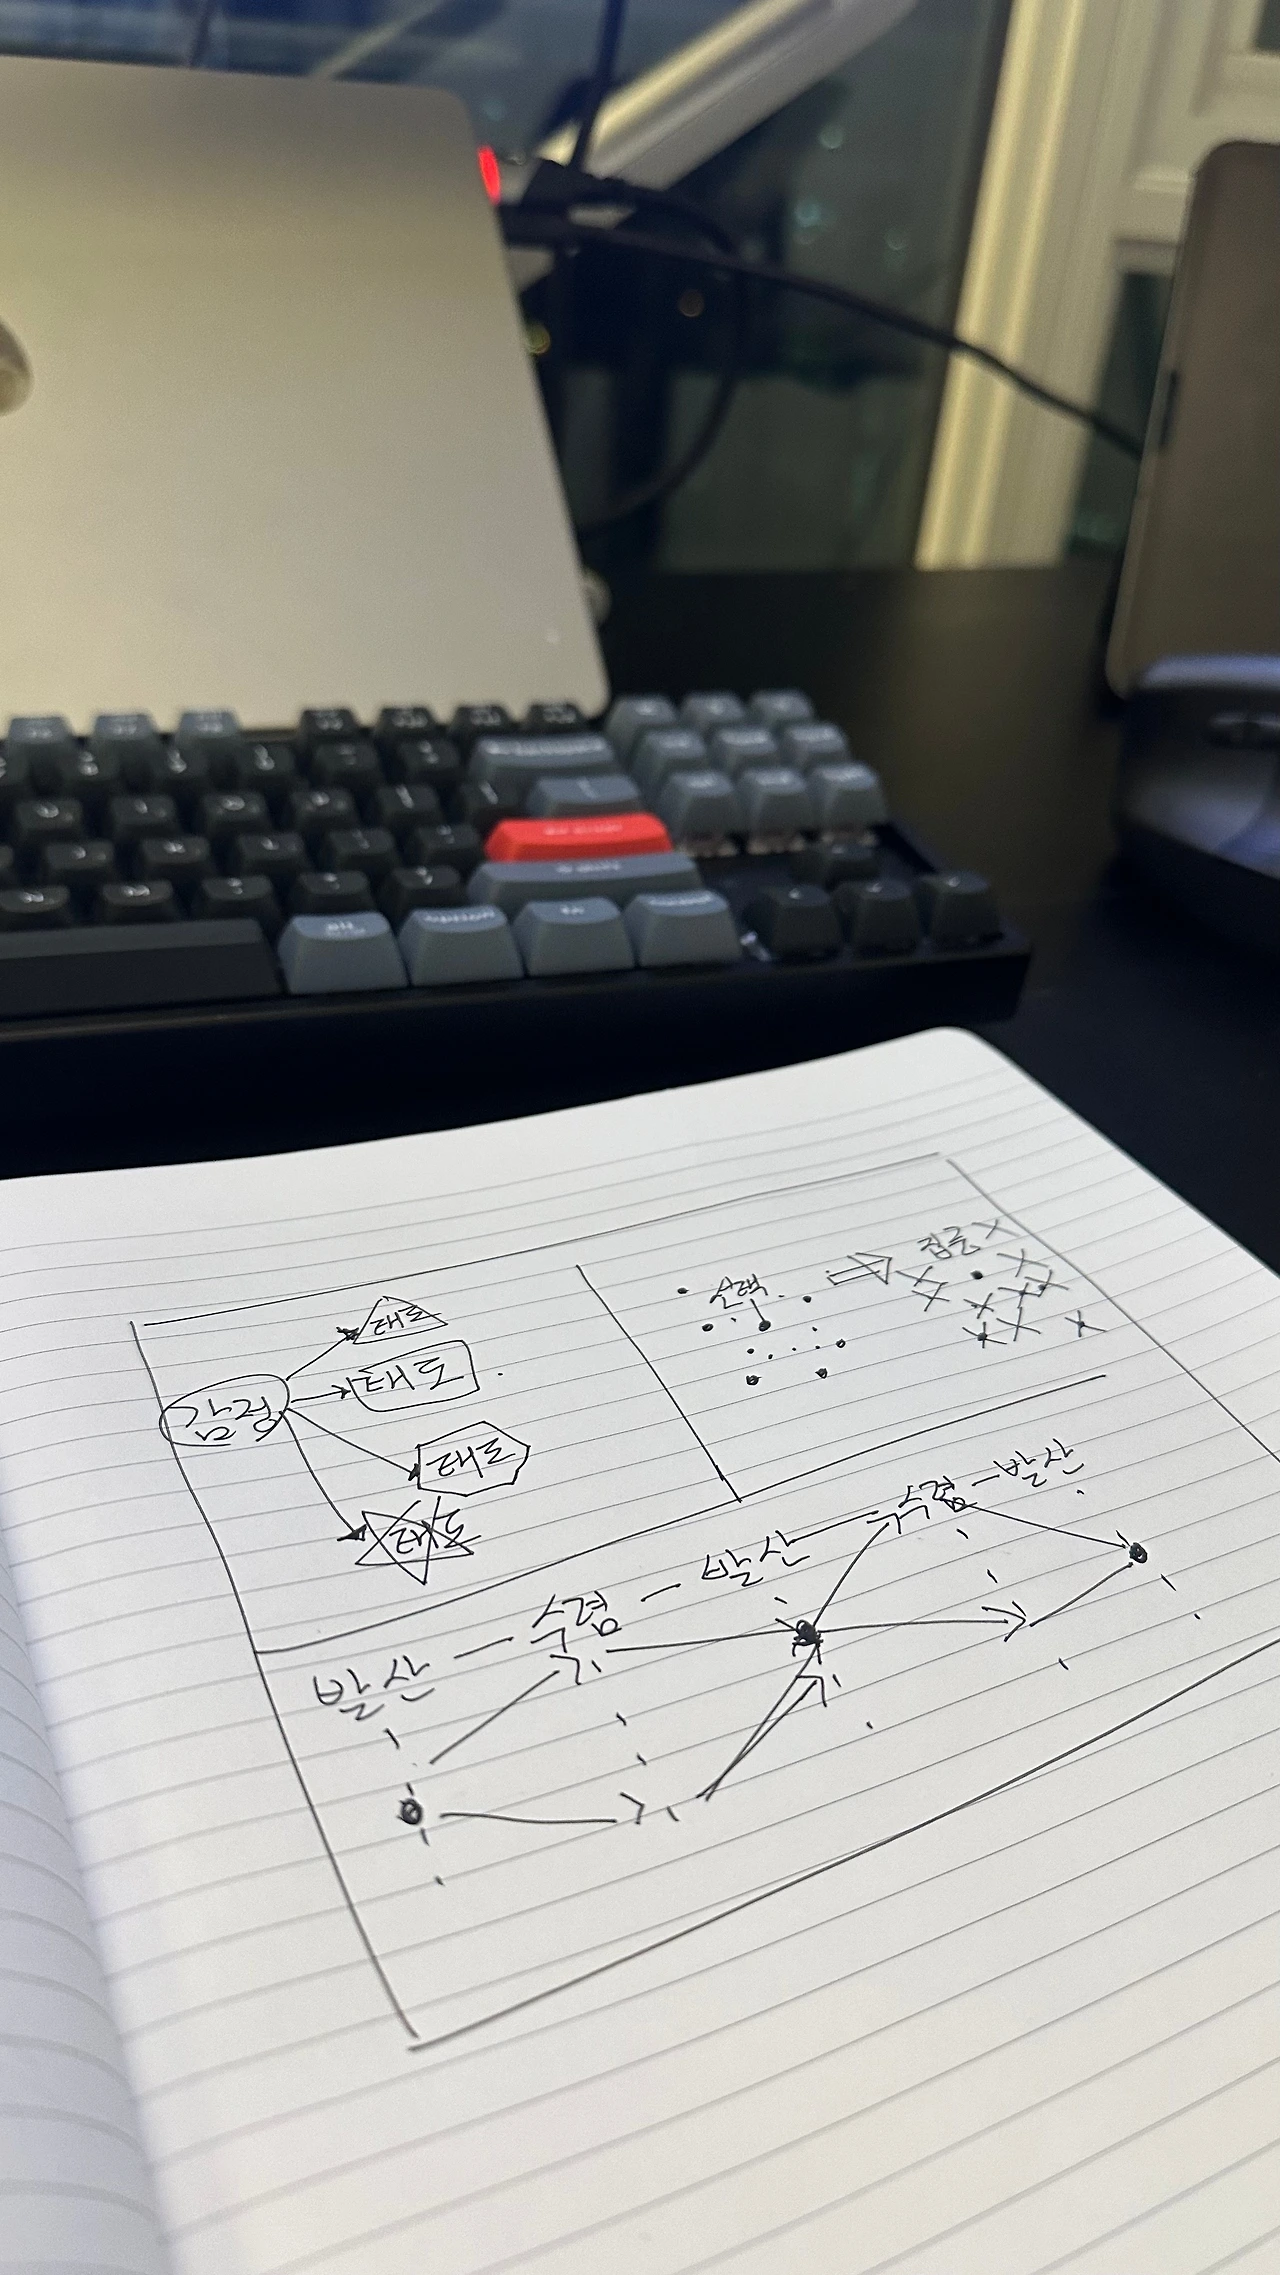 감정
태도
태도
태도
태도
선택
집중
발산 - 수렴 - 발산 - 수렴 - 발산